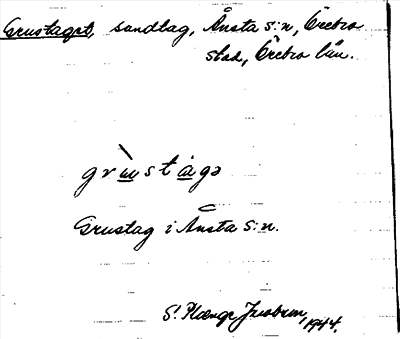 Grustaget, sandtag, Ånsta s:n, Örebro
stad, Örebro län.
grùstàgə
Grustag i Ånsta s:n.
S. Plænge Jacobson, 1944.